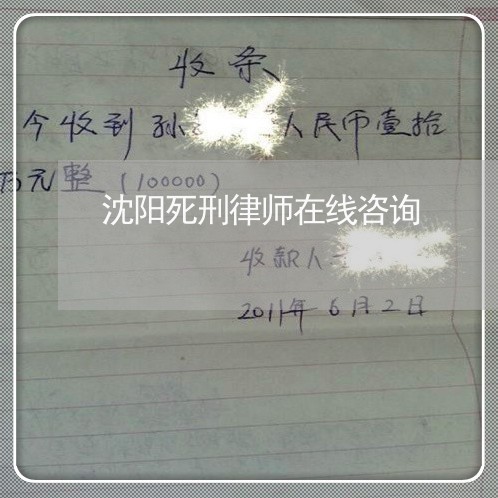 收条
今收到孙 人民币壹拾
万元整（100000）
沈阳死刑律师在线咨询
收款人
2011年6月2日